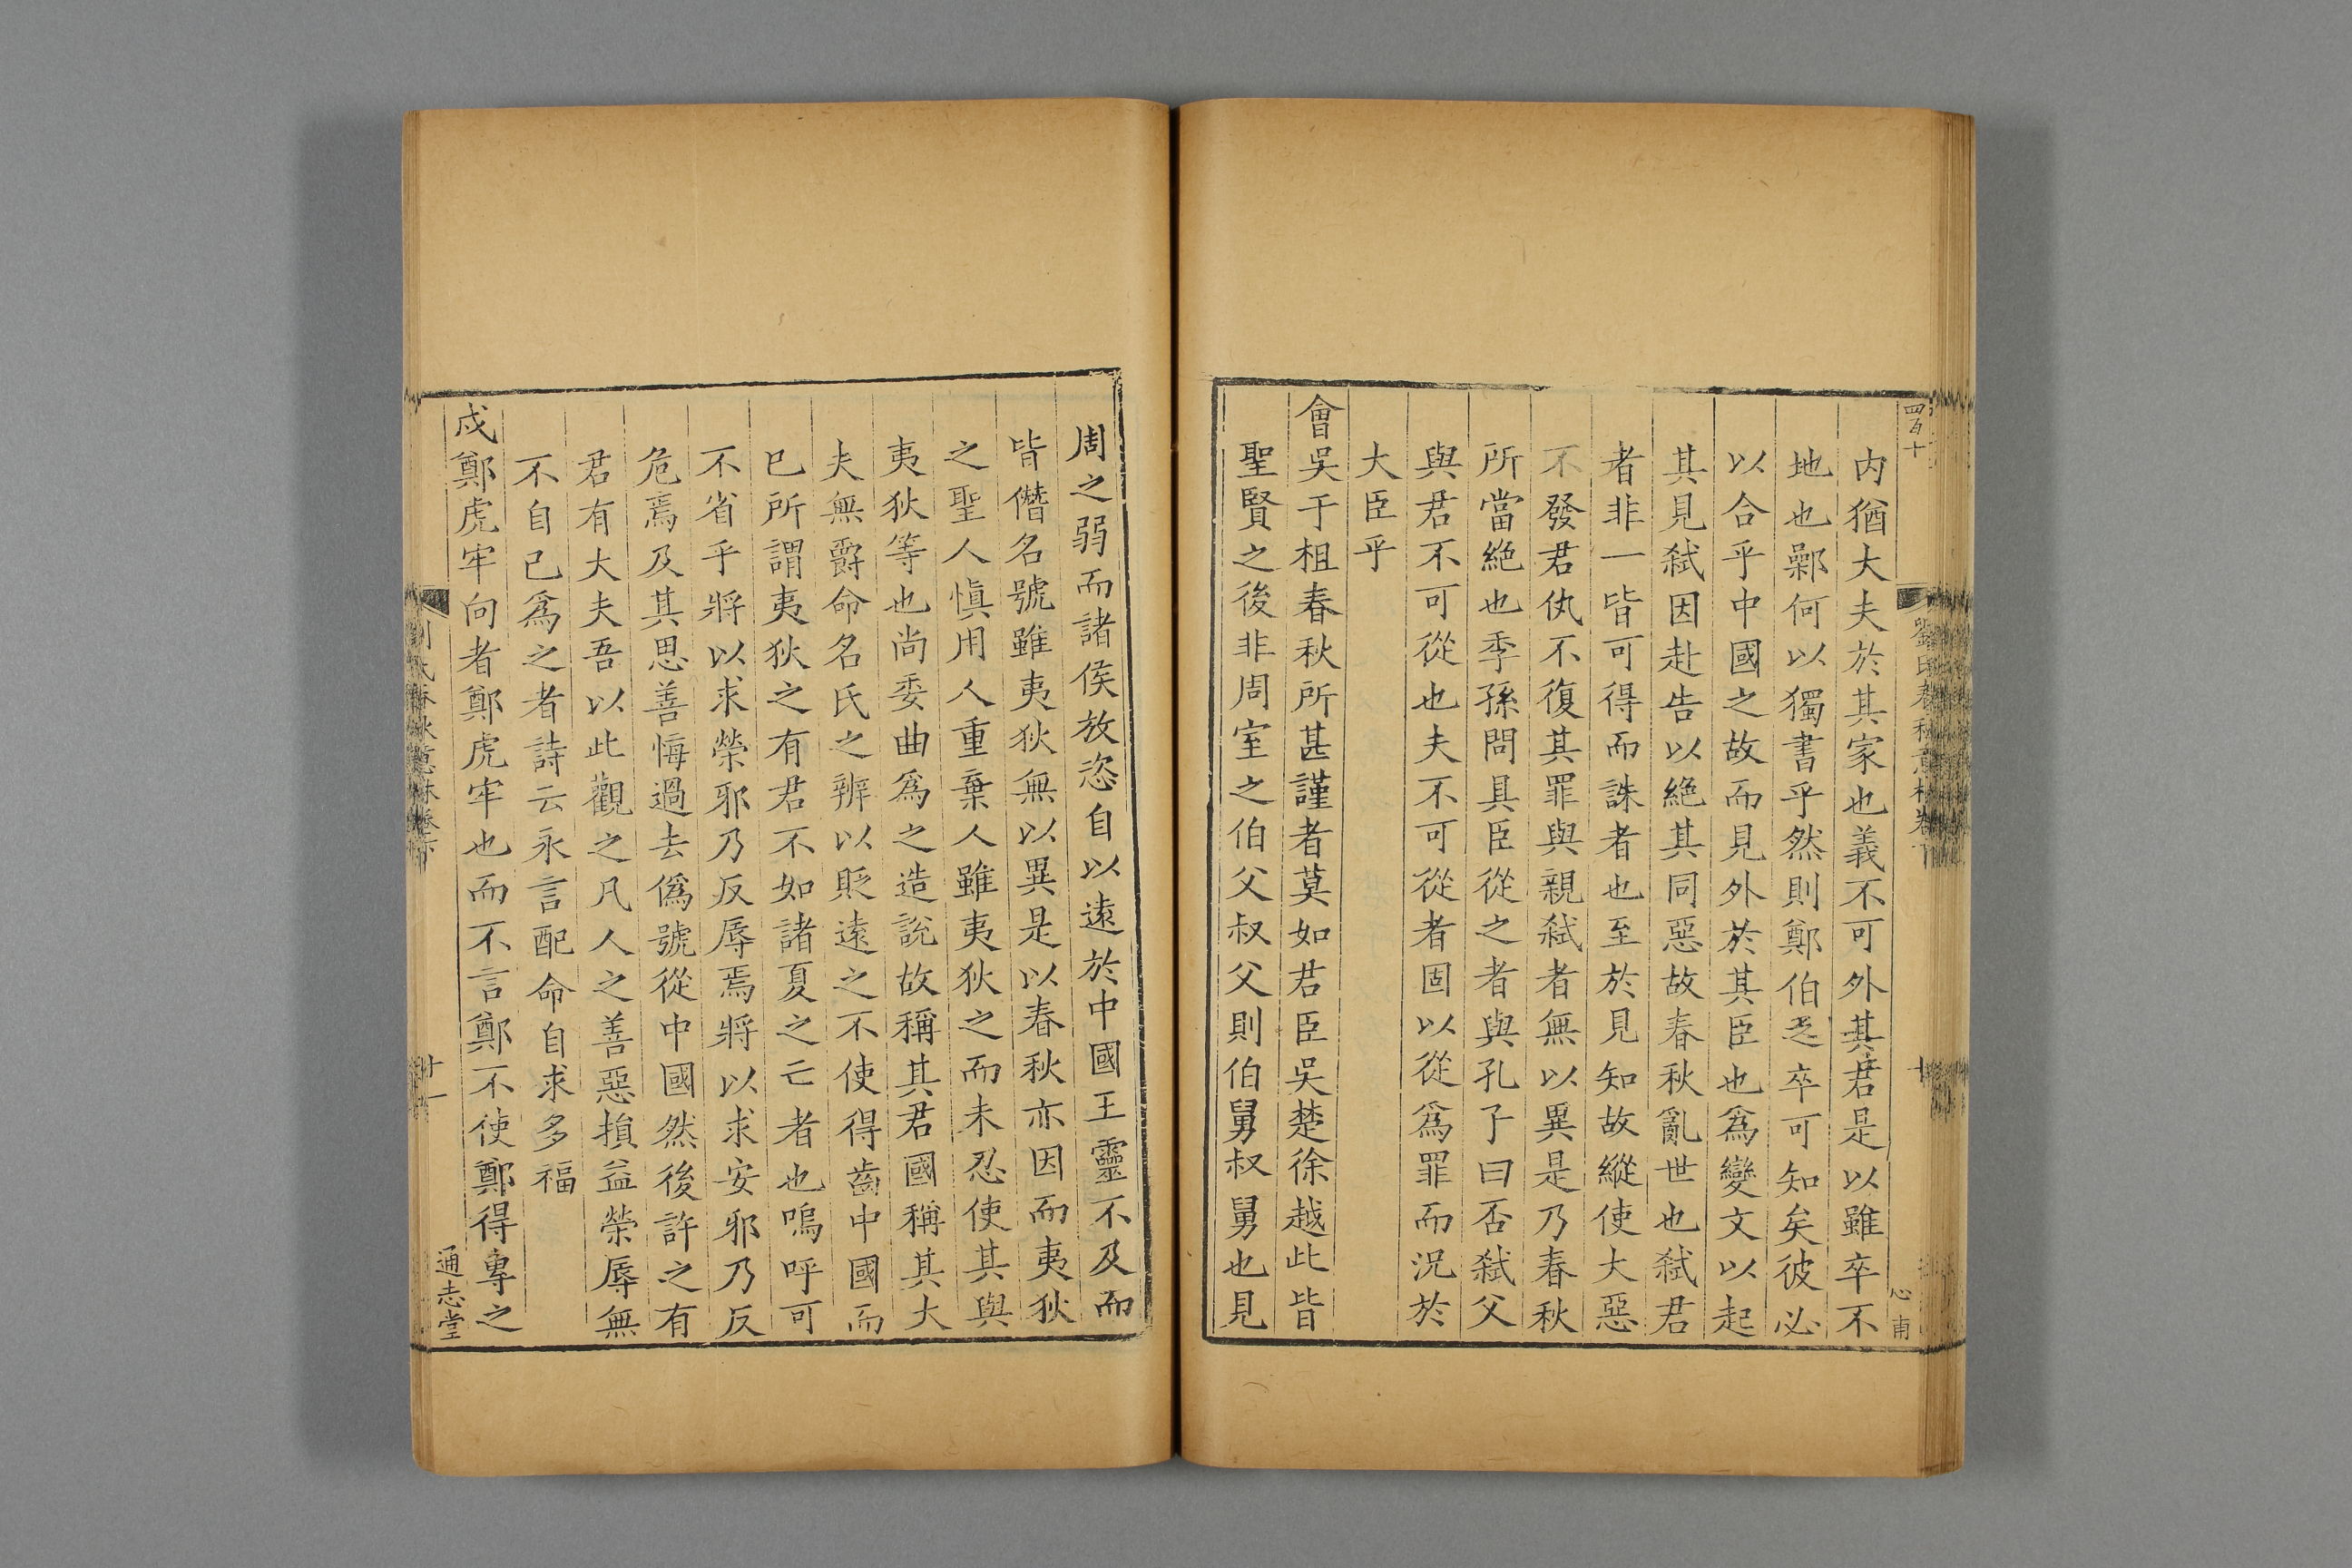 四百十
内猶大夫於其家也義不可外其君是以雖卒不
地也鄴何以獨書乎然則鄭伯之卒可知矣彼必
以合乎中國之故而見外於其臣也爲變文以起
其見弒因赴告以絕其同惡故春秋亂世也弒君
者非一皆可得而誅者也至於見知故縱使大惡
不發君仇不復其罪與親弒者無以異是乃春秋
所當絕也季孫問具臣從之者與孔子曰否弒父
與君不可從也夫不可從者固以從爲罪而況於
大臣乎
會吳于柤春秋所甚謹者莫如君臣吳楚徐越此皆
聖賢之後非周室之伯父叔父則伯舅叔舅也見
周之弱而諸侯放恣自以遠於中國王靈不及而
皆僭名號雖夷狄無以異是以春秋亦因而夷狄
之聖人愼用人重棄人雖夷狄之而未忍使其與
夷狄等也尚委曲爲之造說故稱其君國稱其大
夫無爵命名氏之辨以貶遠之不使得齒中國而
已所謂夷狄之有君不如諸夏之亡者也嗚呼可
不省乎將以求榮邪乃反辱焉將以求安邪乃反
危焉及其思善悔過去僞號從中國然後許之有
君有大夫吾以此觀之凡人之善惡損益榮辱無
不自己爲之者詩云永言配命自求多福
戍鄭虎牢向者鄭虎牢也而不言鄭不使鄭得專之
劉氏春秋意林卷下
十一
通志堂